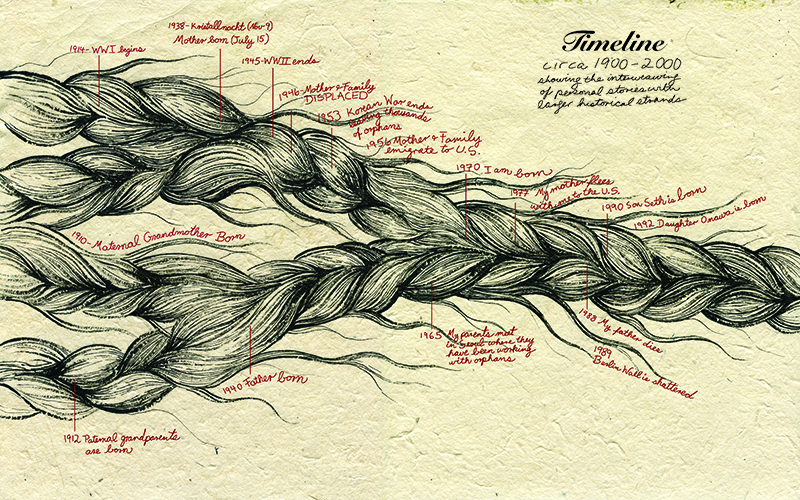 Timeline
circa 1900-2000
showing the interweaving
of personal stories with
larger historical strands
1914-WWI begins
1938-Kristallnacht (Nov-9)
Mother born (July 15)
1945-WWII ends
1946-Mother & Family
DISPLACED
1953 Korean War ends
leaving thousands
of orphans
1956 Mother & Family
emigrate to U.S.
1970 I am born
1977 My mother flees
with me to the U.S.
1990 Son Seth is born
1992 Daughter Onawa is born
1910-Maternal Grandmother Born
1965 My parents meet
in Seoul where they
have been working
with orphans
1988 My father dies
1989
Berlin Wall is shattered
1940 Father born
1912 Paternal grandparents
are born